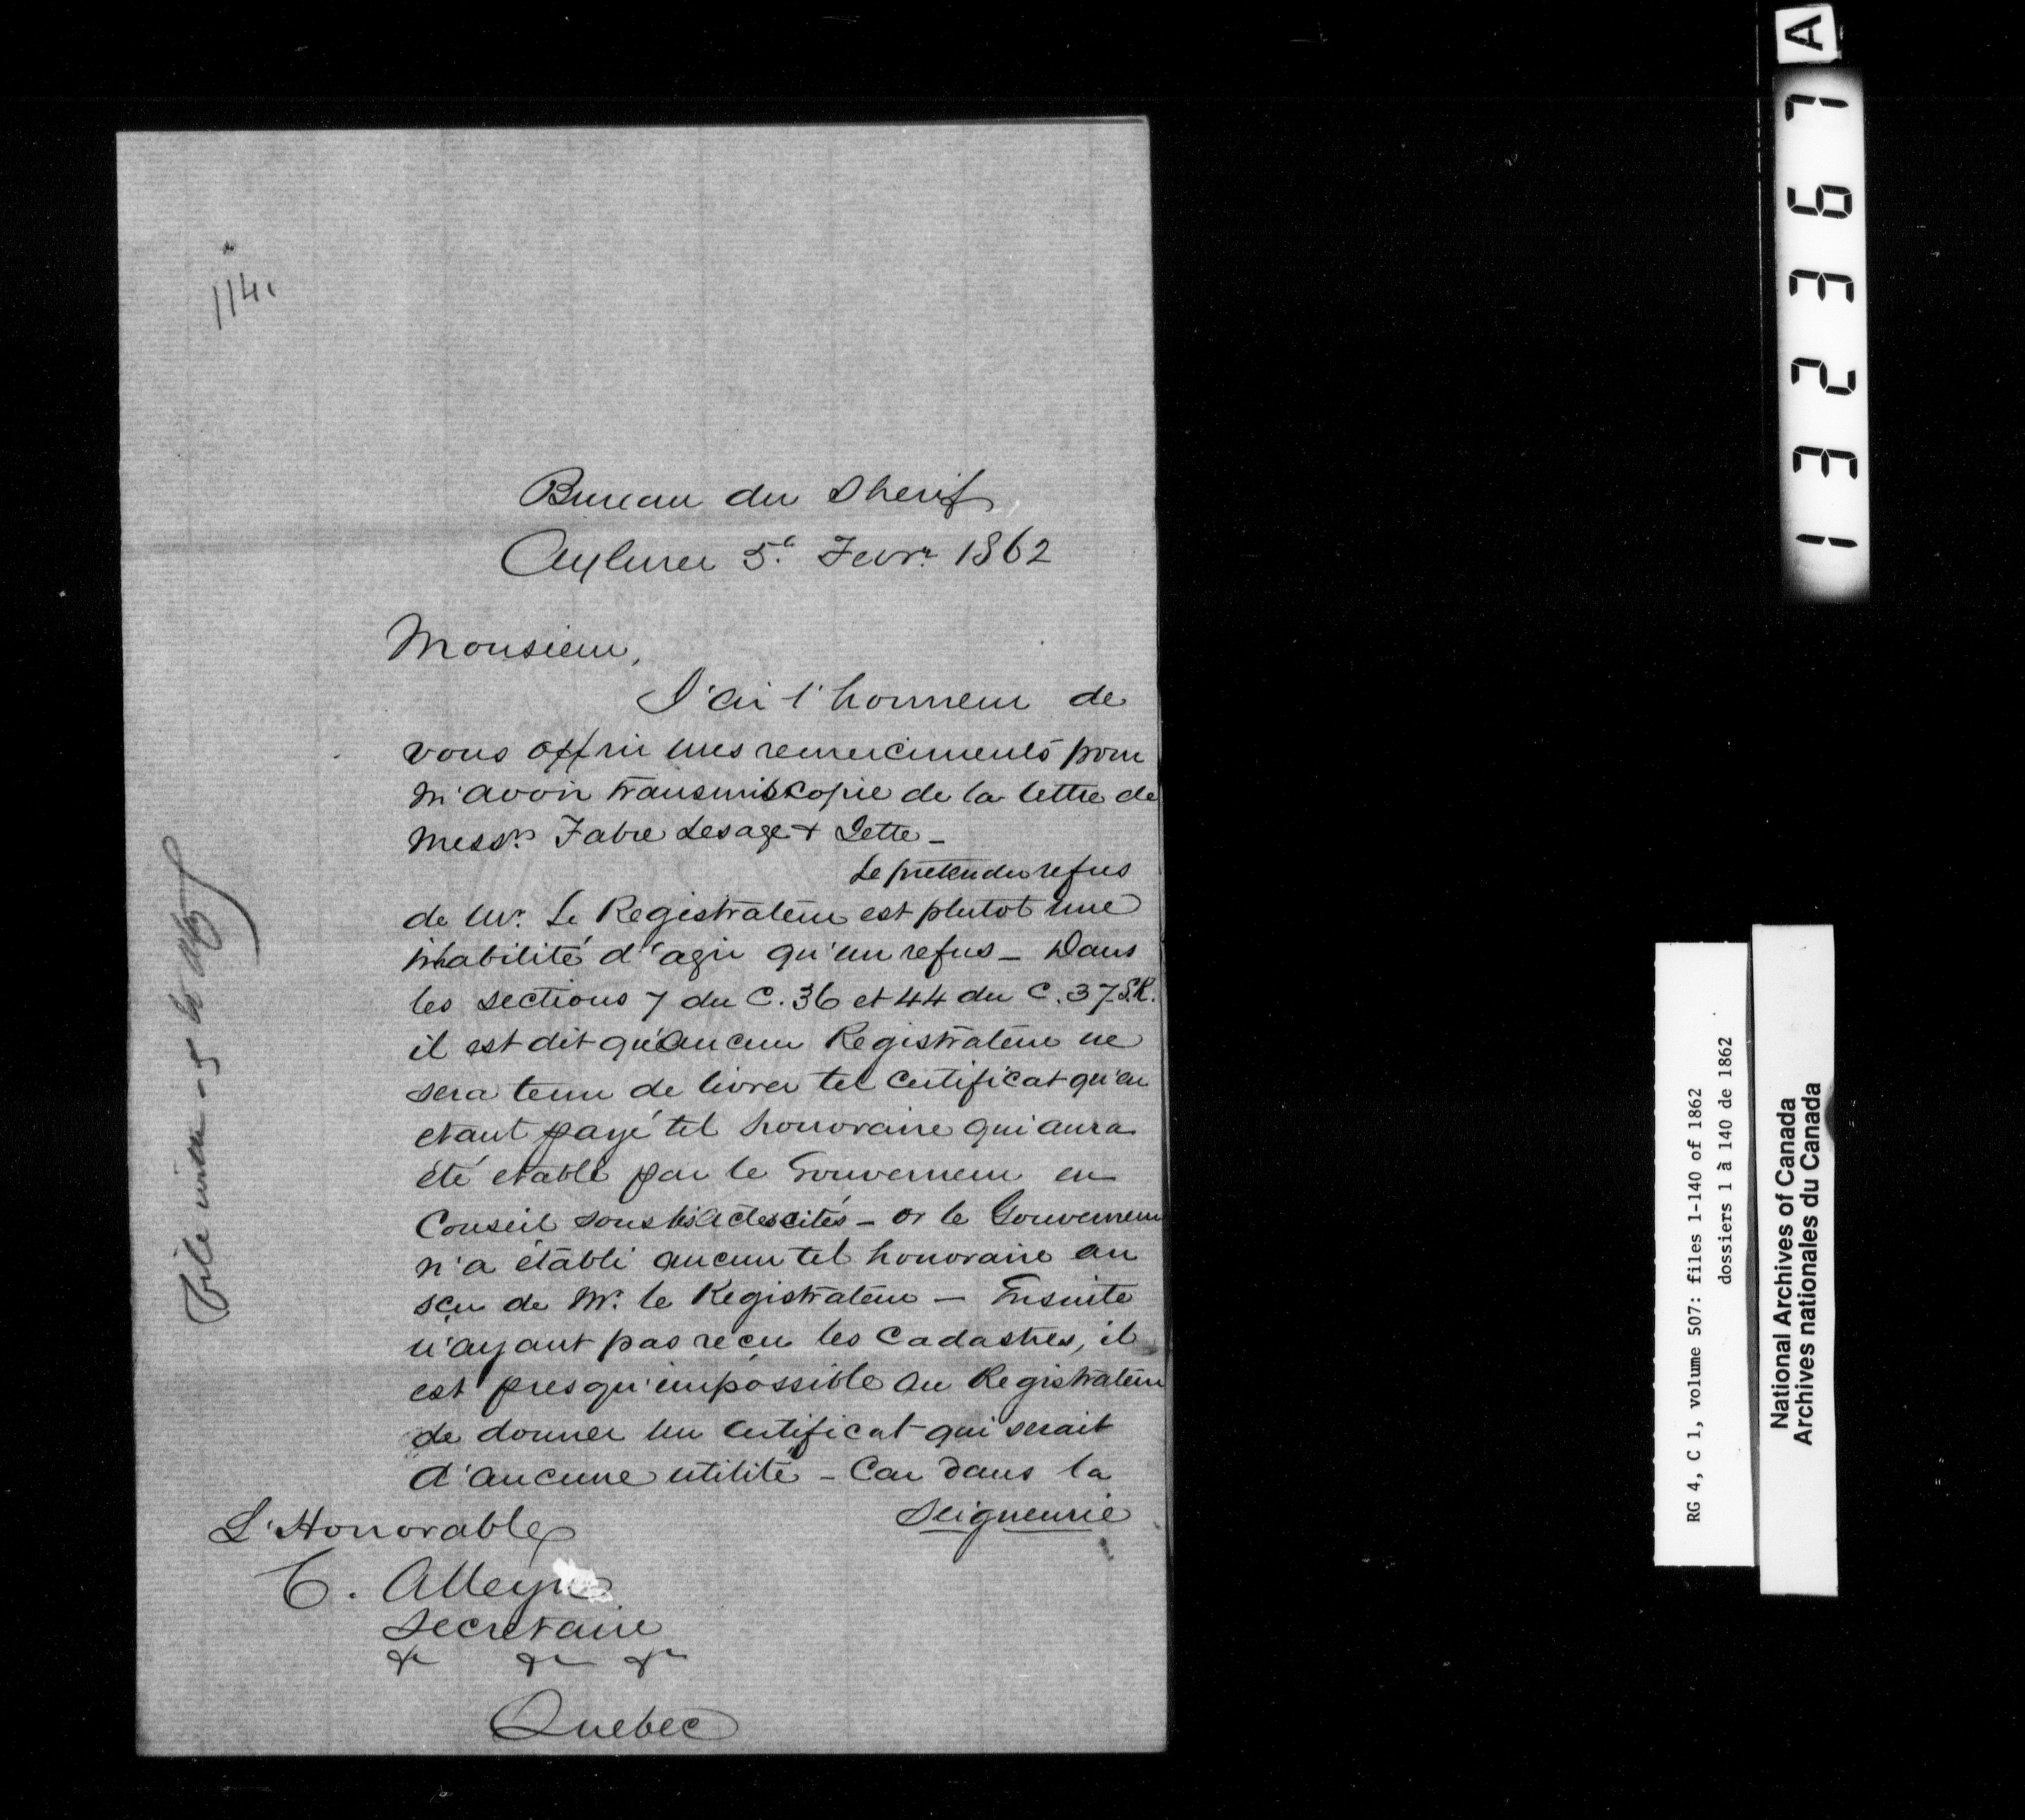 114.
Bureau du Sherif
Aylmer 5e. Fevr. 1862
Monsieur,
J'ai l'honneur de
vous offrir mes remerciments pour
m'avoir transmis copie de la lettre de
Messrs. Fabre Lesage & Jette –
Le pretendu refus
de Mr. Le Registrateur est plutot une
inhabilité d'agir qu'un refus – Dans
les sections 7 du C. 36 et 44 du C. 37 S.R.
il est dit qu'aucun Registrateur ne
sera tenu de livrer tel certificat qu'en
etant payé tel honoraire qui aura
été etabli par le Gouverneur en
Conseil sous les actes cités – or le Gouverneur
n'a établi aucun tel honoraire au
sçu de Mr. le Registrateur – Ensuite
n'ayant pas reçu les Cadastres, il
est presqu'impossible au Registrateur
de donner un certificat qui serait
d'aucune utilité – Car dans la
Seigneurie
L'Honorable
C. Alleyn
Secretaire
& & &
Quebec
A
132367
RG 4, C 1, volume 507: files 1-140 of 1862
dossiers 1 à 140 de 1862
National Archives of Canada
Archives nationales du Canada